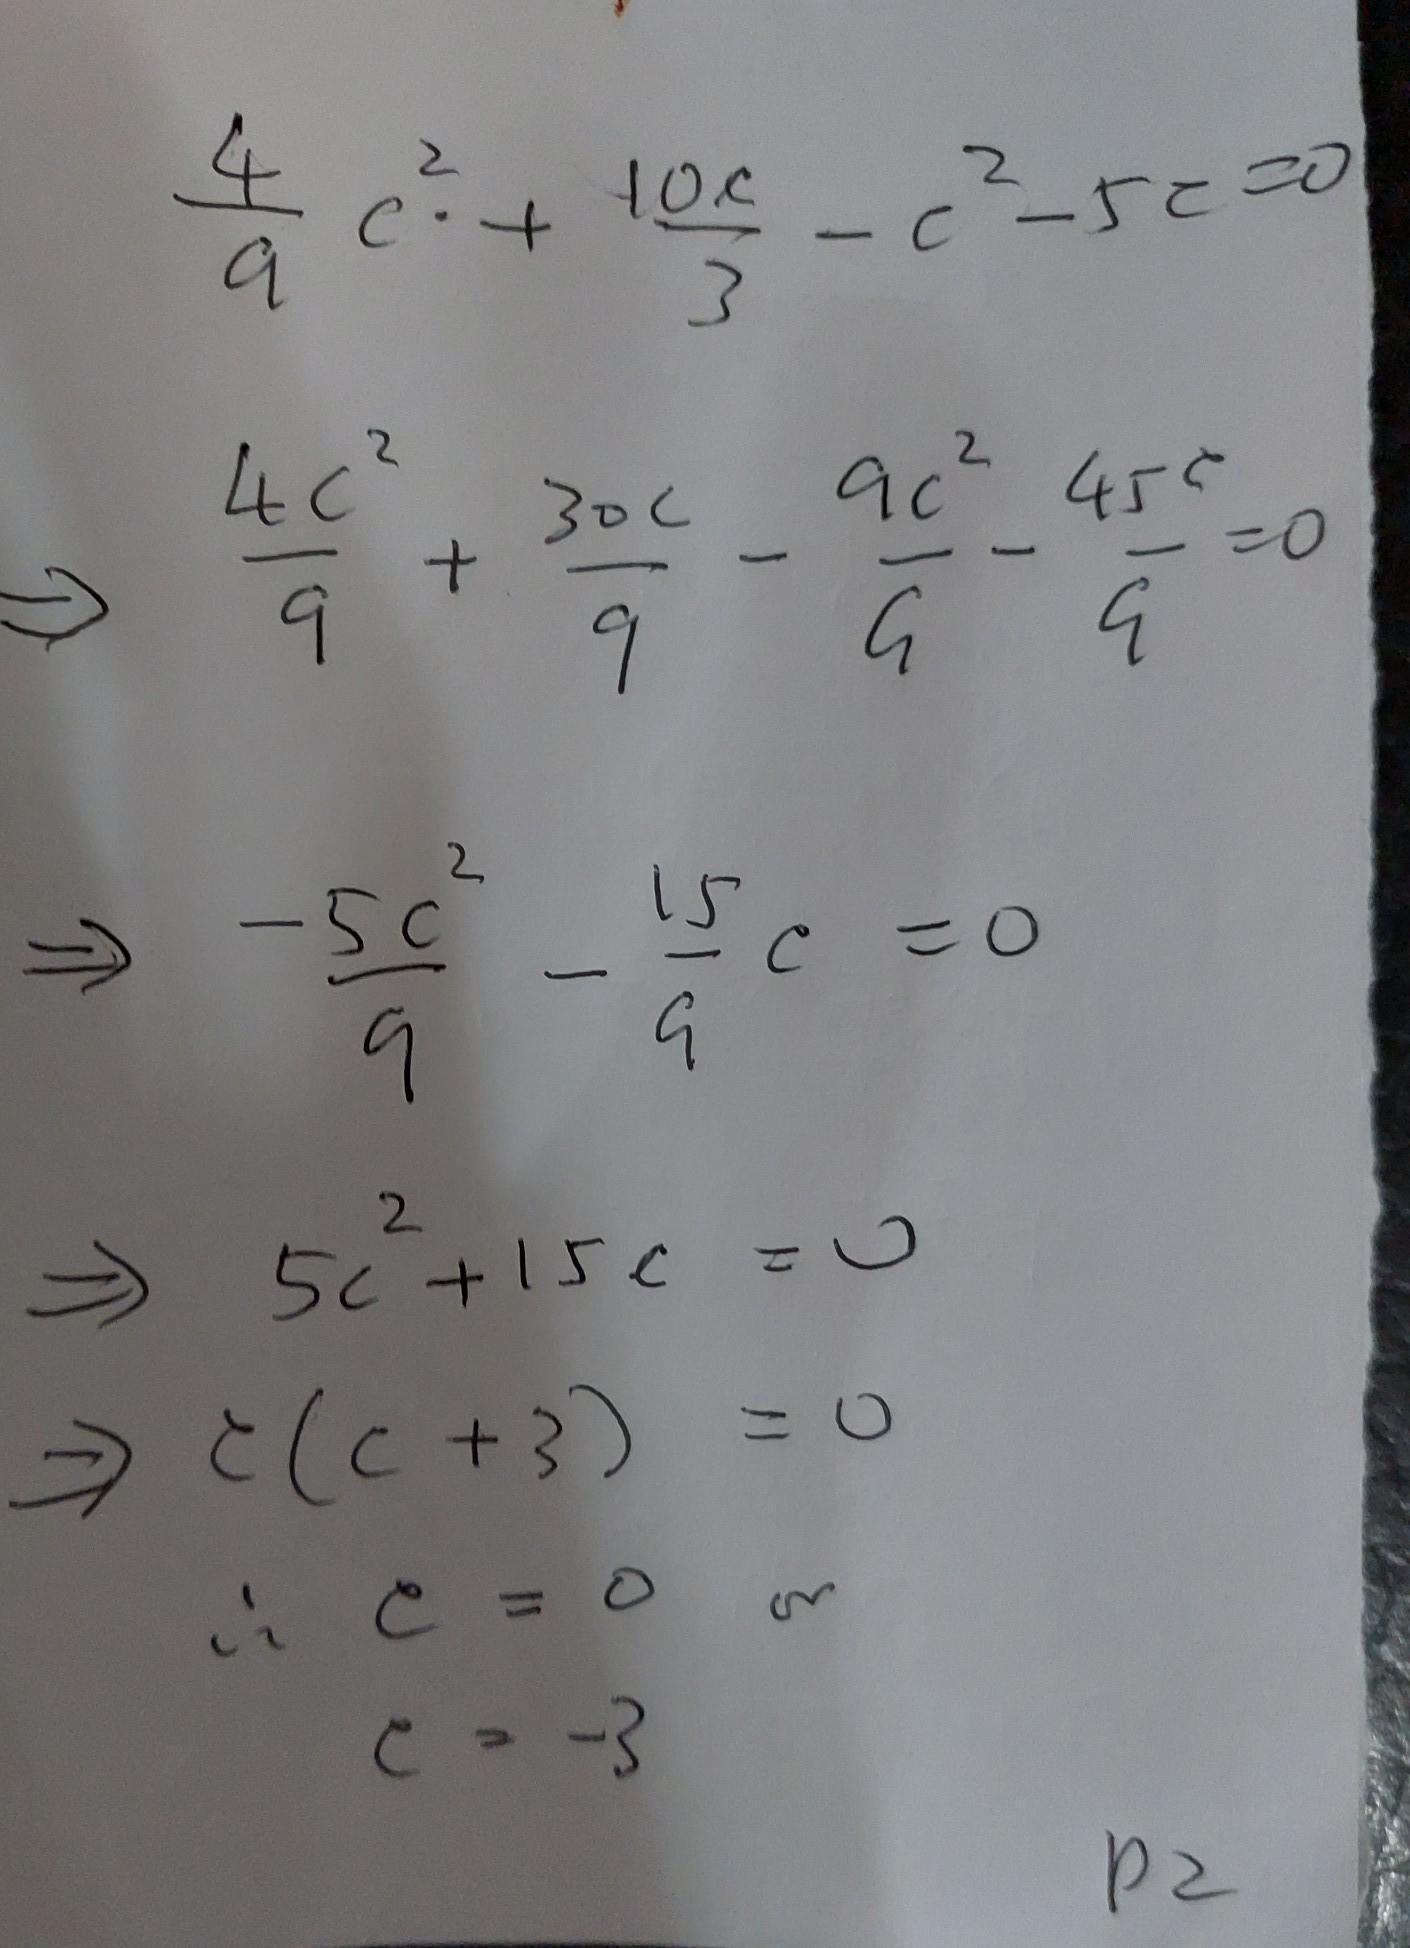 4/9 c² + 10c/3 - c² - 5c = 0
⇒ 4c²/9 + 30c/9 - 9c²/9 - 45c/9 = 0
⇒ -5c²/9 - 15/9 c = 0
⇒ 5c² + 15c = 0
⇒ c(c + 3) = 0
∴ c = 0 or
c = -3
P2